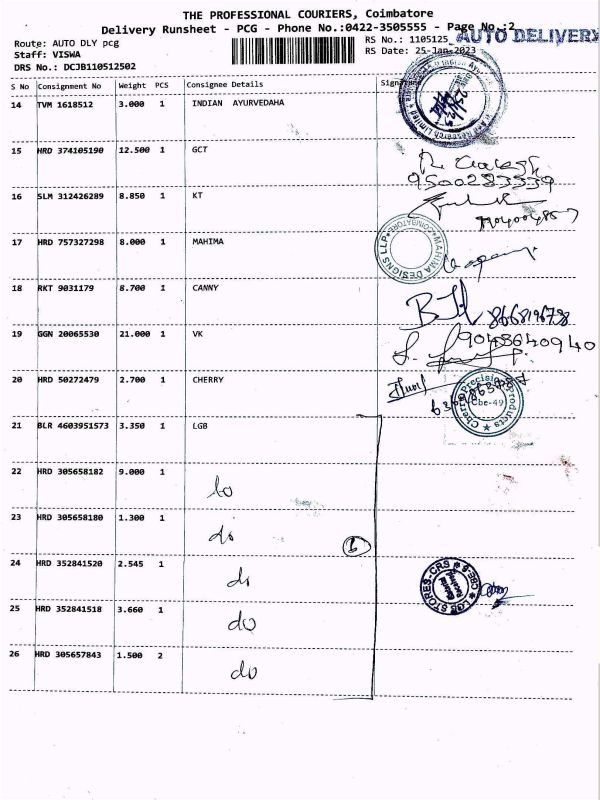 THE PROFESSIONAL COURIERS, Coimbatore
Delivery Runsheet - PCG - Phone No.:0422-3505555 - Page No.:2
Route: AUTO DLY pcg
Staff: VISWA
DRS No.: DCJB110512502
RS No.: 1105125
RS Date: 25-Jan-2023
AUTO DELIVERY
S No Consignment No Weight PCS Consignee Details Signature
14 TVM 1618512 3.000 1 INDIAN AYURVEDAHA
15 HRD 374105190 12.500 1 GCT
9500283339
16 SLM 312426289 8.850 1 KT
17 HRD 757327298 8.000 1 MAHIMA
MAHIMA DESIGNS LLP
COIMBATORE
18 RKT 9031179 8.700 1 CANNY
8668196798
19 GGN 20065530 21.000 1 VK
9048640940
20 HRD 50272479 2.700 1 CHERRY
Cherry Precision Products
Cbe-49
21 BLR 4603951573 3.350 1 LGB
22 HRD 305658182 9.000 1 do
23 HRD 305658180 1.300 1 do
6
24 HRD 352841520 2.545 1 do
LGB STORES-CRS
CBE-6
25 HRD 352841518 3.660 1 do
26 HRD 305657843 1.500 2 do